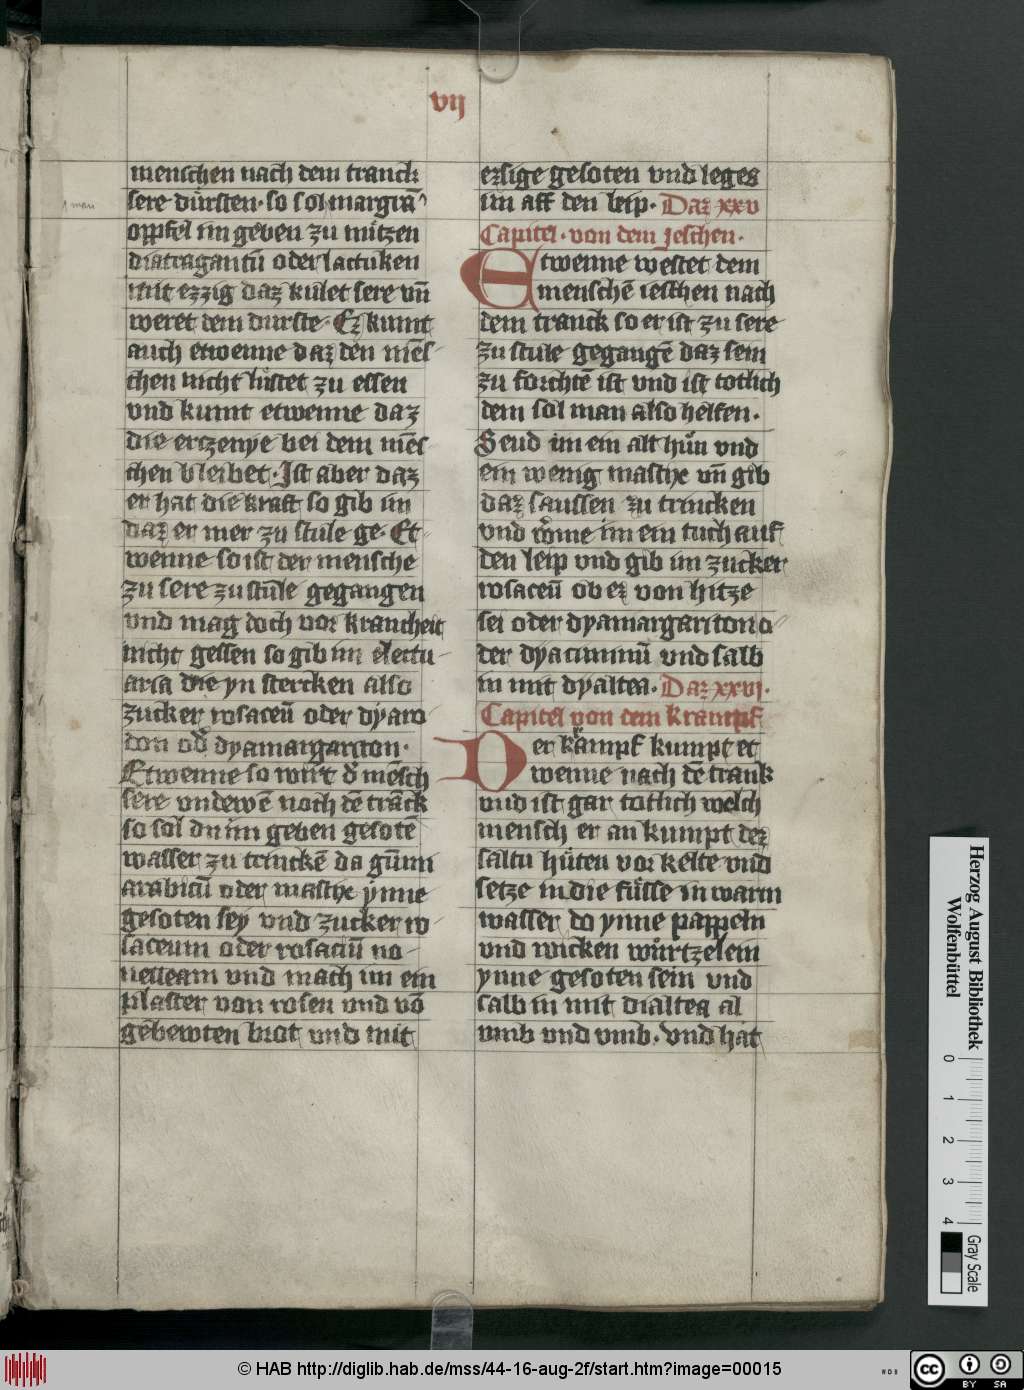 vij
menschen nach dem tranck
sere dürsten· so sol margrā
öppfel im geben zu nützen
diatragantū oder lactuken
mit ezzig daz kület sere vn̄
weret dem durste· Ez kumt
auch etwenne daz den mēs
chen nicht lüstet zu essen
vnd kumt etwenne daz
die erczenye bei dem mēs
chen bleibet· Ist aber daz
er hat die kraft so gib im
daz er mer zu stule ge· Et
wenne so ist der mensche
zu sere zu stūle gegangen
vnd mag doch vor krancheit
nicht gessen so gib im electu
aria die yn stercken also
zucker rosaceū oder dyaro
don od̓ dyamargariton·
Etwenne so wirt d̓ mēsch
sere vndewē noch dē trāck
so sol du im geben gesotē
wasser zu trinckē da gūmi
arabicū oder mastix ynne
gesoten sey vnd zucker ro
saceum oder rosaciū no
uelleam vnd mach im ein
plaster von rosen vnd vō
gebewten brot vnd mit
1 man
ezsige gesoten vnd leges
im aff den leip· Daz xxv
Capitel· von dem Jeschen·
Etwenne westet dem
menschē ieschen nach
dem tranck so er ist zu sere
zu stule gegangē daz sein
zu forchtē ist vnd ist totlich
dem sol man also helfen·
Seud im ein alt hün vnd
ein wenig mastixe vn̄ gib
daz saussen zu trincken
vnd im ein tuch auf
den leip vnd gib im zucker
rosaceū ob ez von hitze
sei oder dyamargariton o
der dyaciminū vnd salb
in mit dyaltea· Daz xxvj·
Capitel von dem krampf
Der krampf kumpt et
wenne nach dē trank
vnd ist gar totlich welch
mensch er an kumpt dez
saltu hüten vor kelte vnd
setze in die füsse in warm
wasser do ynne pappeln
vnd wicken würtzelein
ynne gesoten sein vnd
salb in mit dialtea al
vmb vnd vmb· vnd hat
Herzog August Bibliothek
Wolfenbüttel
0 1 2 3 4
Gray Scale
© HAB http://diglib.hab.de/mss/44-16-aug-2f/start.htm?image=00015
cc BY SA